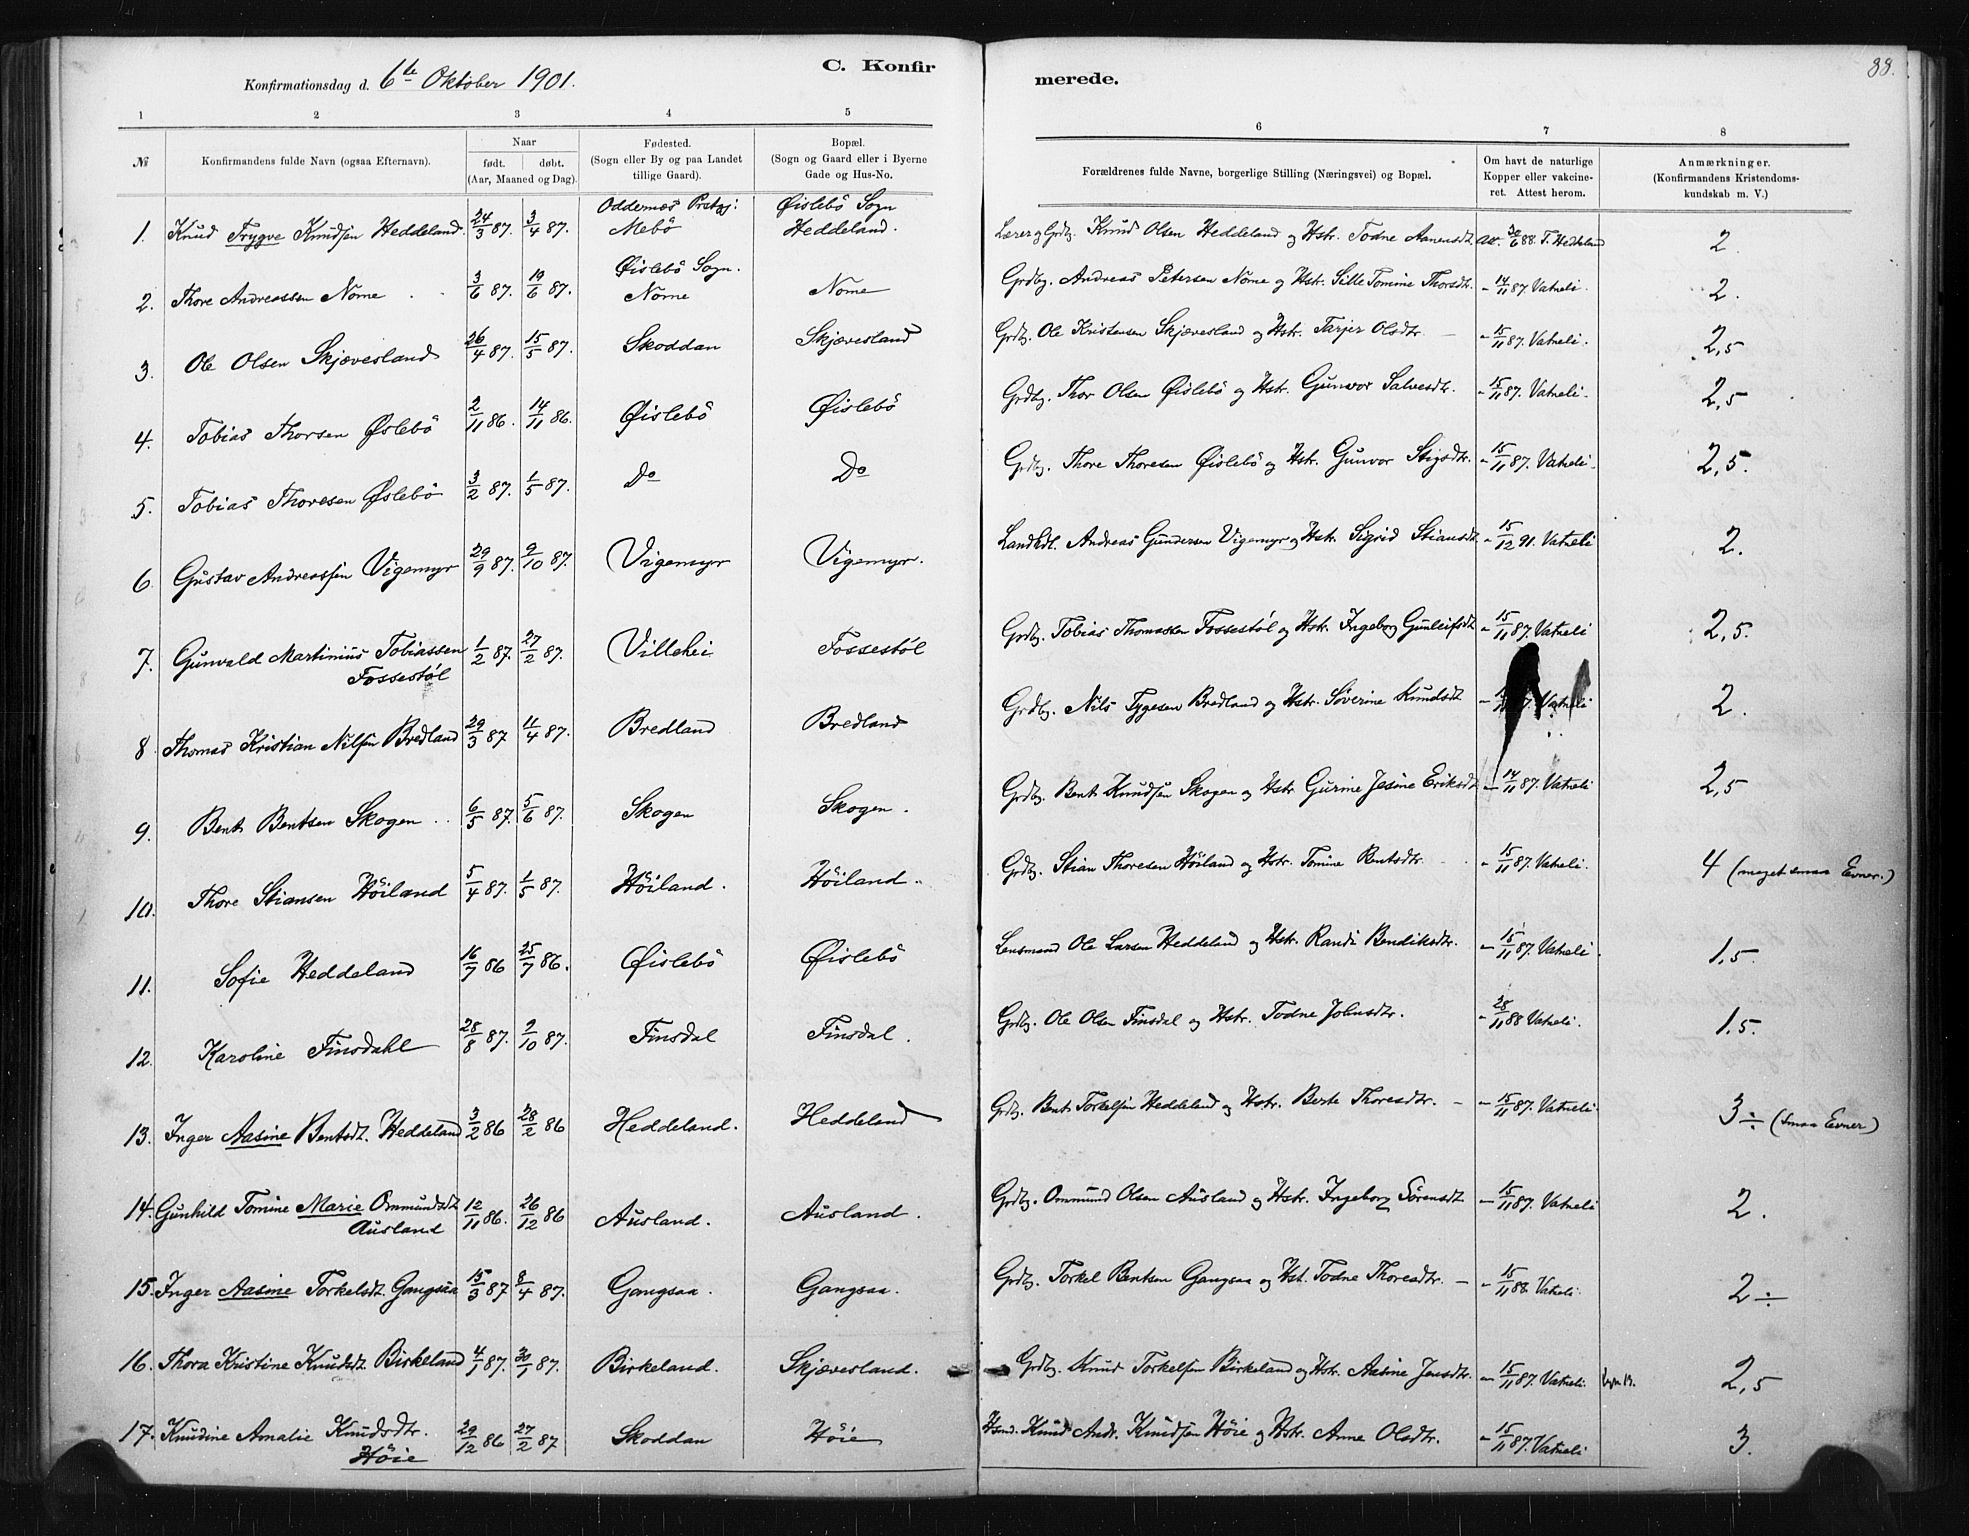 C. Konfirmerede.
88.
Konfirmationsdag d. 6te Oktober 1901.
1 2 3 4 5 6 7 8
№ Konfirmandens fulde Navn (ogsaa Efternavn). Naar født. døbt. (Aar, Maaned og Dag). Fødested. (Sogn eller By og paa Landet tillige Gaard). Bopæl. (Sogn og Gaard eller i Byerne Gade og Hus-No. Forældrenes fulde Navne, borgerlige Stilling (Næringsvei) og Bopæl. Om havt de naturlige Kopper eller vakcineret. Attest herom. Anmærkninger. (Konfirmandens Kristendomskundskab m. V.)
1. Knud Trygve Knudsen Heddeland. 24/3 87. 3/4 87. Oddernæs Prstgj: Mebö Øislebö Sogn Heddeland. Lærer og Grdbg. Knud Olsen Heddeland og Hstr. Todne Aanensdt. Att. 30/6 88. T. Heddeland 2
2. Thore Andreassen Nome 3/6 87. 19/6 87. Øislebö Sogn. Nome Nome Grdbg. Andreas Petersen Nome og Hstr. Sille Tomine Thorsdtr. - 14/11 87. Vatneli. 2.
3. Ole Olsen Skjævesland 26/4 87. 15/5 87. Skoddan Skjævesland Grdbg. Ole Kristensen Skjævesland og Hstr. Tarjer Olsdtr. - 15/11 87. Vatneli. 2,5
4. Tobias Thorsen Øslebö 2/11 86. 14/11 86. Øislebö Øislebö Grdbg. Thor Olsen Øislebö og Hstr. Gunvor Salvesdtr. - 15/11 87. Vatneli. 2,5
5. Tobias Thoresen Øslebö 3/2 87. 1/5 87. Do Do Grdbg. Thore Thoresen Øislebö og Hstr. Gunvor Stigsdtr. - 15/11 87. Vatneli. 2,5.
6. Gustav Andreassen Vigemyr 29/9 87. 9/10 87. Vigemyr Vigemyr. Landhdl. Andreas Gundersen Vigemyr og Hstr. Sigrid Stiansdt. - 15/12 91. Vatneli 2.
7. Gunvald Martinius Tobiassen Fossestöl 1/2 87. 27/2 87. Villehei Fossestöl Grdbg. Tobias Thomassen Fossestöl og Hstr. Ingeborg Gunleifsdt - 15/11 87. Vatneli 2,5.
8. Thomas Kristian Nilsen Bredland 29/3 87 11/4 87. Bredland Bredland Grdbg. Nils Tygesen Bredland og Hstr. Söverine Knudsdt - Vatneli 2.
9. Bent Bentsen Skogen 6/5 87. 5/6 87. Skogen Skogen. Grdbg. Bent Knudsen Skogen og Hstr Gurine Jesine Eriksdt - 14/11 87. Vatneli 2,5
10. Thore Stiansen Höiland 5/4 87. 1/5 87. Höiland. Höiland. Grdbg. Stian Thoresen Höiland og Hstr. Tomine Bentsdtr. - 15/11 87. Vatneli. 4 (meget smaa Evner.)
11. Sofie Heddeland 16/7 86 25/7 86. Øislebö Øislebö Lensmand Ole Larsen Heddeland og Hstr. Randi Bendiksdtr. - 15/11 87. Vatneli. 1,5.
12. Karoline Finsdahl 28/8 87. 9/10 87. Finsdal Finsdal. Grdbg. Ole Olsen Finsdal og Hstr. Todne Johnsdtr. - 28/11 88 Vatneli. 1,5.
13. Inger Aasine Bentsdt. Heddeland 3/2 86 28/2 86 Heddeland. Heddeland Grdbg. Bent Torkelsen Heddeland og Hstr. Berte Thoresdtr. - 15/11 87. Vatneli. 3÷ (smaa Evner)
14. Gunhild Tomine Marie Ommundsdt Ausland 12/11 86. 26/12 86 Ausland. Ausland. Grdbg. Ommund Olsen Ausland og Hstr. Ingeborg Sörensdt - 15/11 87. Vatneli 2.
15. Inger Aasine Torkelsdt. Gangsaa 15/3 87 8/4 87. Gangsaa. Gangsaa. Grdbg. Torkel Bentsen Gangsaa og Hst. Todne Thoresdtr. - 15/11 88. Vatneli. 2÷
16. Thora Kristine Knudsdt. Birkeland 4/1 87. 30/1 87. Birkeland. Skjævesland. Grdbg. Knud Torkelsen Birkeland og Hstr. Aasine Jensdtr. - 15/11 87. Vatneli 2,5
17. Knudine Amalie Knudsdtr. Höie 29/12 86 27/2 87 Skoddan Höie Hsmd. Knud Andr. Knudsen Höie og Hstr. Anne Olsdtr. - 15/11 87. Vatneli 3.